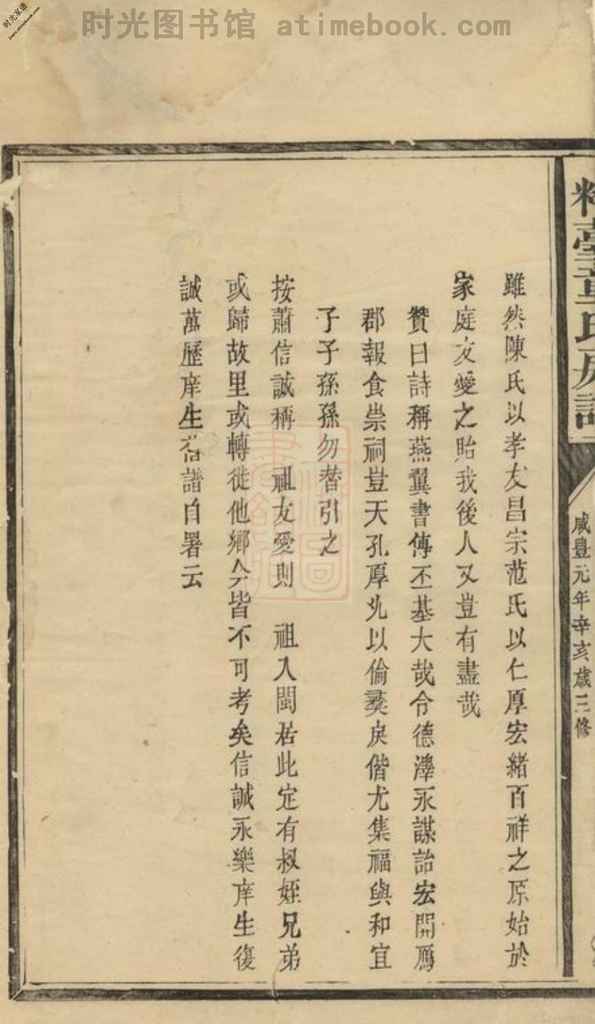 时光图书馆 atimebook.com
氏房譜
咸豐元年辛亥歲三修
雖然陳氏以孝友昌宗范氏以仁厚宏緒百祥之原始於
家庭友愛之貽我後人又豈有盡哉
贊曰詩稱燕翼書傳丕基大哉令德澤永謀詒宏開鴈
郡報食崇祠豈天孔厚允以倫彝戾偕尤集福與和宜
子子孫孫勿替引之
按蕭信誠稱 祖友愛則 祖入閩居此定有叔姪兄弟
或歸故里或轉徙他鄉今皆不可考矣信誠永樂庠生復
誠萬歷庠生舊譜自署云